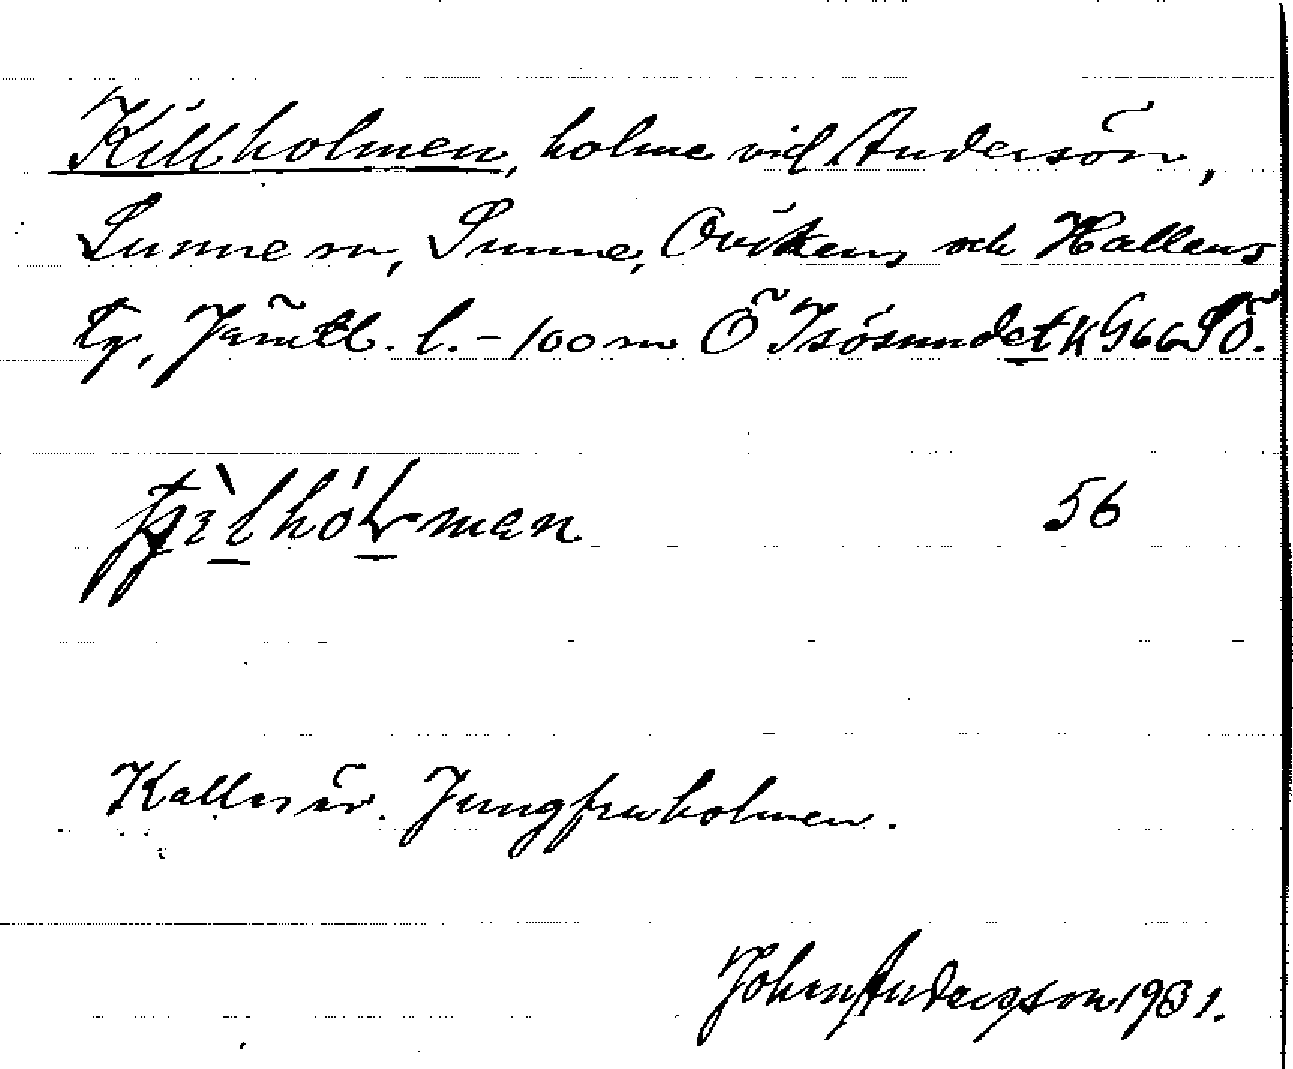 Killholmen, holme vid Andersön,
Sunne sn, Sunne, Ovikens och Hallens
tg, Jämtl. l. - 100 m Ö Isösundet K G66 SÖ.
man 56
Kallas äv. Jungfruholmen.
Johan Andersson 1931.